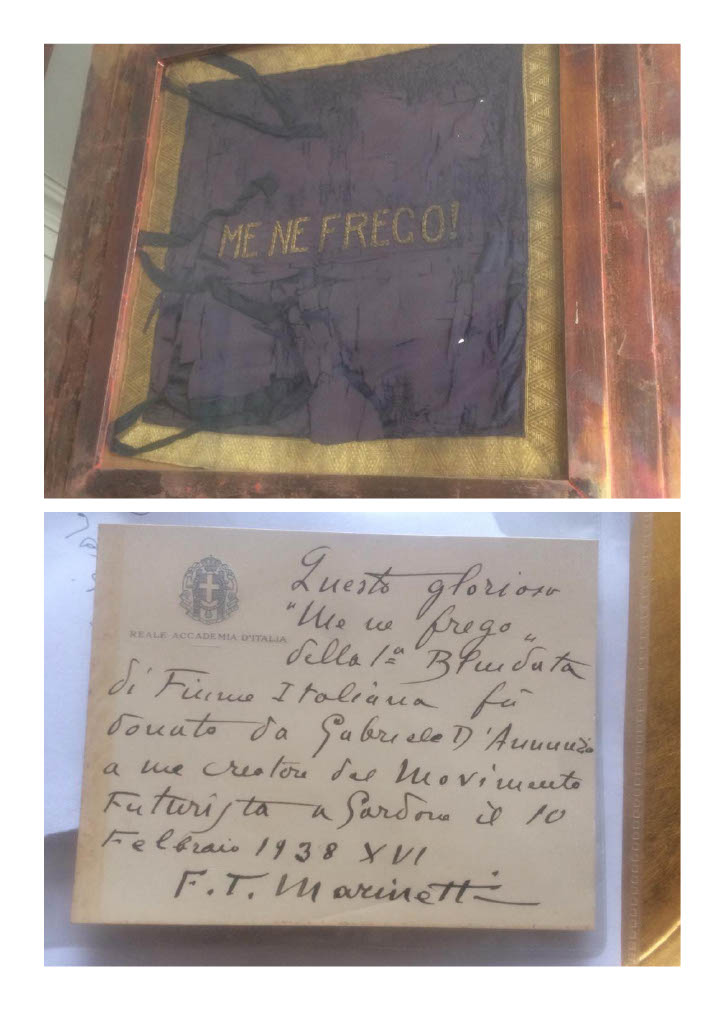 ME NE FREGO!
REALE ACCADEMIA D'ITALIA
Questo glorioso
"Me ne frego"
della 1ª Blindata
di Fiume Italiana fù
donato da Gabriele D'Annunzio
a me creatore del Movimento
Futurista a Gardone il 10
Febbraio 1938 XVI
F. T. Marinetti